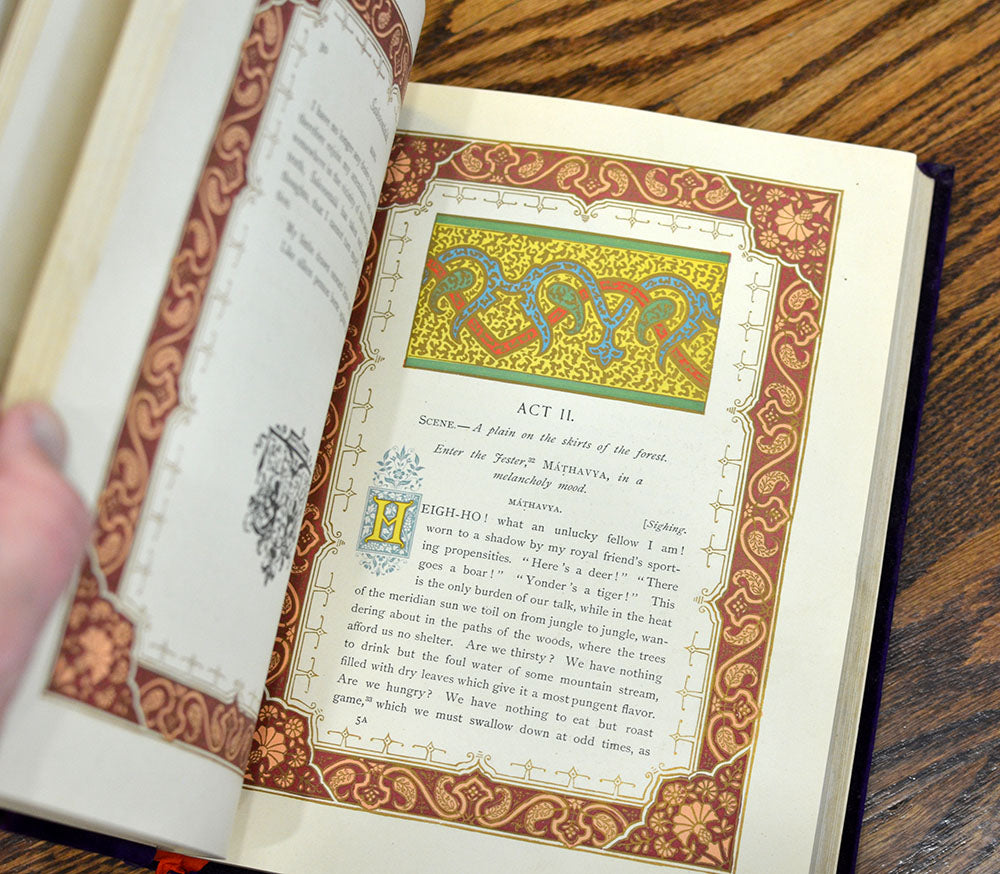 I have no longer any
therefore enjoin my
somewhere in the vicinity of
thoughts, that I cannot
My limbs drawn onward
Like silken pennon
ACT II.
SCENE.—A plain on the skirts of the forest.
Enter the Jester,³² MÁTHAVYA, in a
melancholy mood.
MÁTHAVYA.
[Sighing.
HEIGH-HO! what an unlucky fellow I am!
worn to a shadow by my royal friend's sport-
ing propensities. "Here's a deer!" "There
goes a boar!" "Yonder's a tiger!" This
is the only burden of our talk, while in the heat
of the meridian sun we toil on from jungle to jungle, wan-
dering about in the paths of the woods, where the trees
afford us no shelter. Are we thirsty? We have nothing
to drink but the foul water of some mountain stream,
filled with dry leaves which give it a most pungent flavor.
Are we hungry? We have nothing to eat but roast
game,³³ which we must swallow down at odd times, as
5A